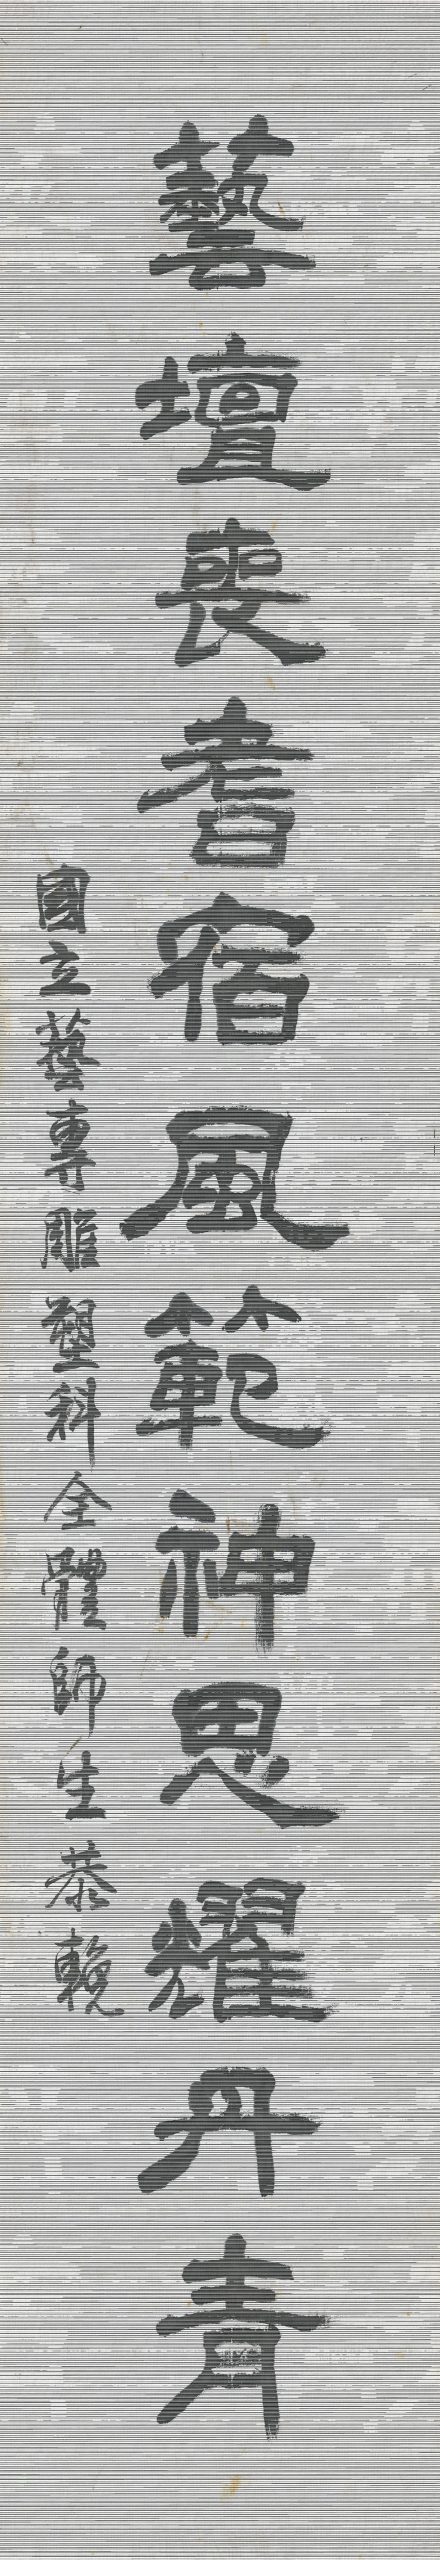 藝壇喪耆宿風範神思耀丹青
國立藝專雕塑科全體師生恭輓